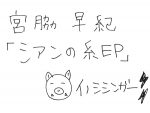 宮脇 早紀
「シアンの糸EP」
イノシシンガー